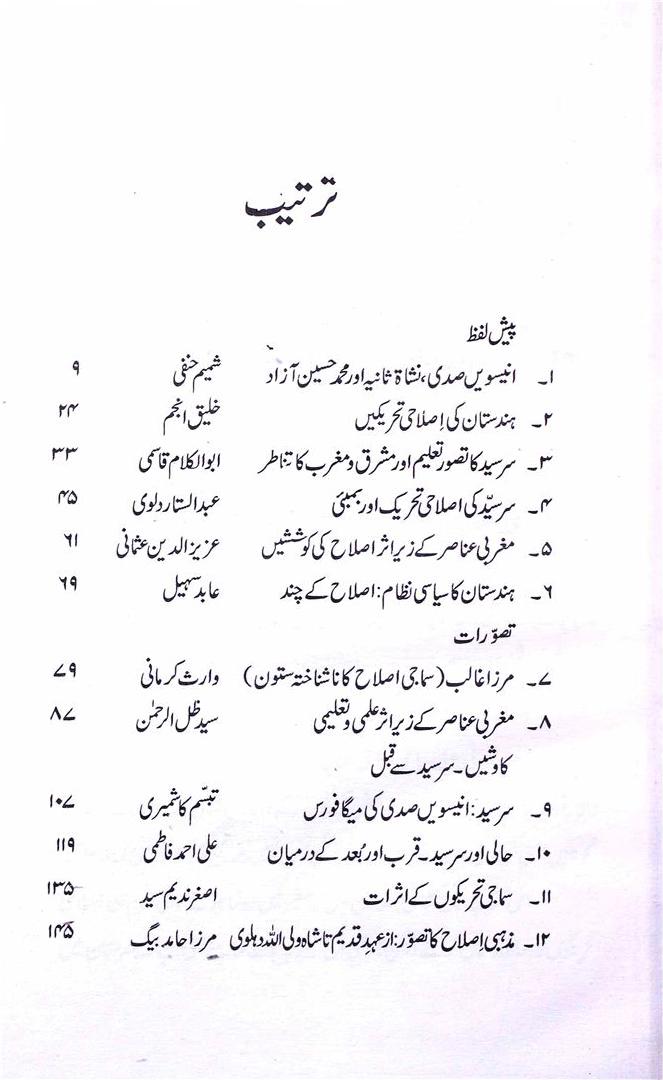 ترتیب
پیش لفظ
۱۔ انیسویں صدی، نشاۃ ثانیہ اور محمد حسین آزاد شمیم حنفی ۹
۲۔ ہندستان کی اِصلاحی تحریکیں خلیق انجم ۲۴
۳۔ سرسید کا تصور تعلیم اور مشرق و مغرب کا تناظر ابوالکلام قاسمی ۳۳
۴۔ سرسیّد کی اصلاحی تحریک اور بمبئی عبدالستار دلوی ۴۵
۵۔ مغربی عناصر کے زیر اثر اصلاح کی کوششیں عزیز الدین عثمانی ۶۱
۶۔ ہندستان کا سیاسی نظام: اصلاح کے چند عابد سہیل ۶۹
تصوّرات
۷۔ مرزا غالب (سماجی اصلاح کا ناشناختہ ستون) وارث کرمانی ۷۹
۸۔ مغربی عناصر کے زیر اثر علمی و تعلیمی سید ظل الرحمٰن ۸۷
کاوشیں۔ سرسید سے قبل
۹۔ سرسید: انیسویں صدی کی میگا فورس تبسّم کاشمیری ۱۰۷
۱۰۔ حالی اور سرسید۔ قرب اور بُعد کے درمیان علی احمد فاطمی ۱۱۹
۱۱۔ سماجی تحریکوں کے اثرات اصغر ندیم سید ۱۳۵
۱۲۔ مذہبی اِصلاح کا تصوّر: از عہدِ قدیم تا شاہ ولی اللہ دہلوی مرزا حامد بیگ ۱۴۵